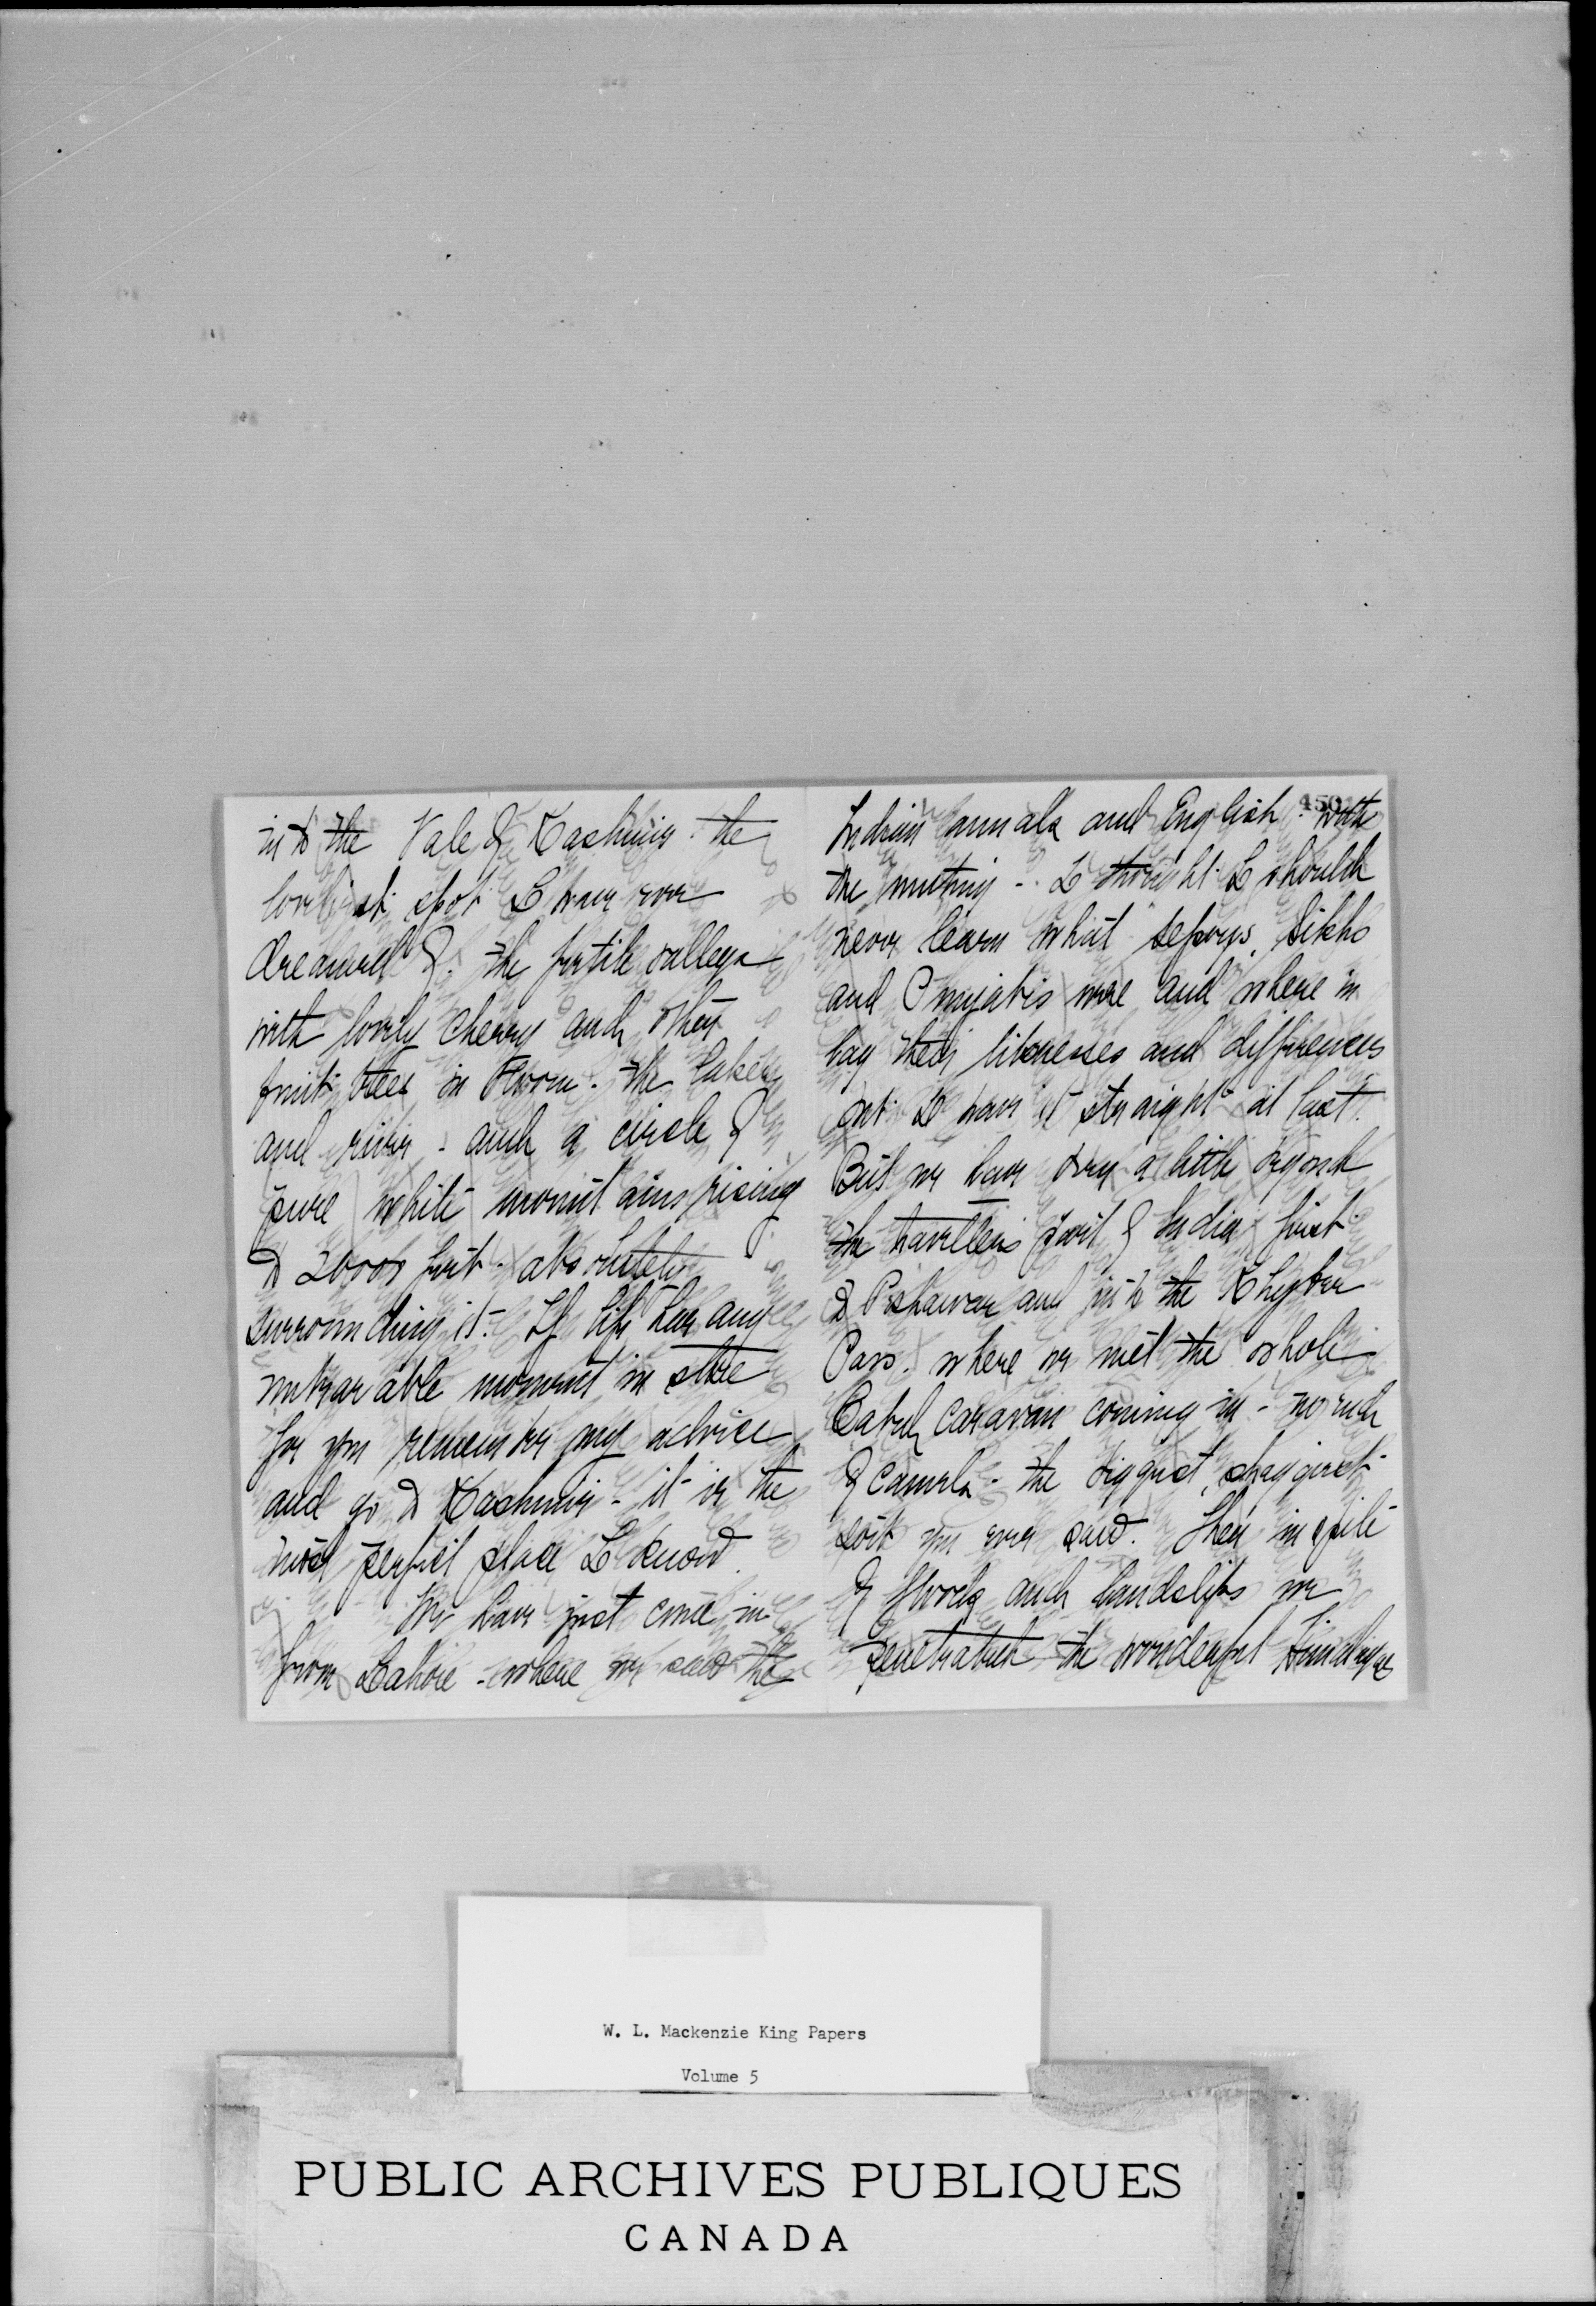 into the Vale of Kashmir - the
loveliest spot I have ever
dreamed of. the fertile valleys
with lovely cherry and other
fruit trees in bloom - the lakes
and river - and a circle of
pure white mountains rising
to 26000 feet - absolutely
surrounding it - If life has any
unbearable moment in store
for you remember my advice
and go to Kashmir - it is the
most perfect place I know.
We have just come in
from Lahore - where we saw the
Indian annals and English - with
the mutiny - I thought I should
never learn what sepoys, Sikhs
and Punjabis were and where in
lay their likenesses and differences
but I have it straight at last.
But we have been a little beyond
the travellers of India first
to Peshawar and into the Khyber
Pass. where we met the whole
Cabul caravan coming in -
of camels - the biggest, shaggiest
sort you ever saw. Then in spite
of floods and landslips we
penetrated the wonderful Himalayas
W. L. Mackenzie King Papers
Volume 5
PUBLIC ARCHIVES PUBLIQUES
CANADA